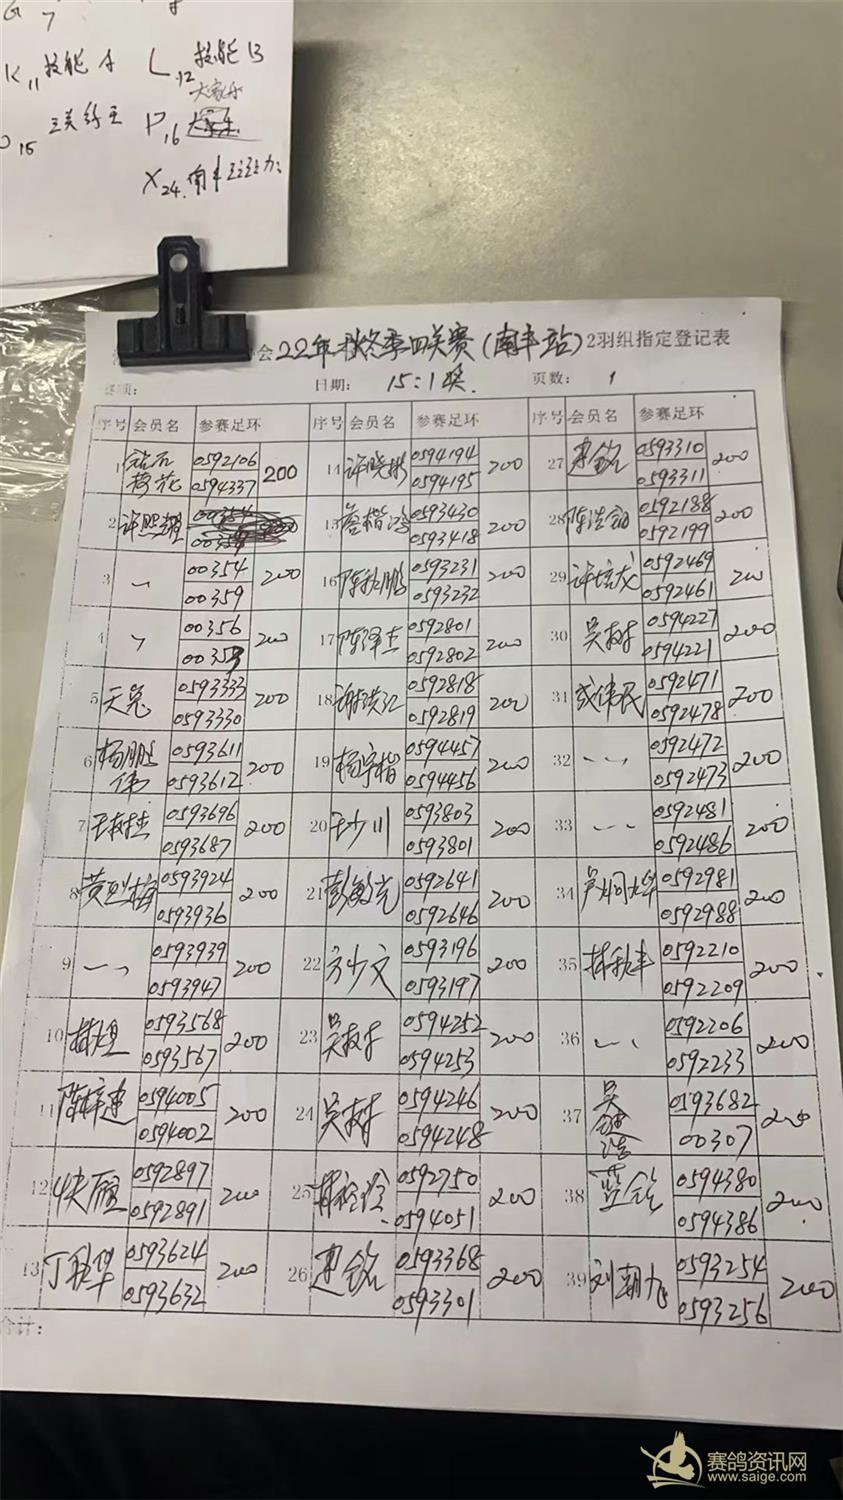 G 7 8
K 11 技能A L 12 技能B
大家乐
15 三关综王 P 16
X 24. 南丰
会22年秋冬季四关赛(南丰站)2羽组指定登记表
日期: 15:1奖. 页数: 1
序号 会员名 参赛足环 序号 会员名 参赛足环 序号 会员名 参赛足环
1 0592106 0594337 200 14 许晓彬 0594194 0594195 200 27 建铭 0593310 0593311 200
2 许照耀 15 0593430 0593418 200 28 陈浩 0592188 0592199 200
3 00354 00359 200 16 陈秋鹏 0593231 0593232 200 29 许培龙 0592469 0592461 200
4 00356 200 17 陈泽杰 0592801 0592802 200 30 吴树 0594227 0594221 200
5 0593333 0593330 200 18 谢 0592818 0592819 200 31 伟民 0592471 0592478 200
6 杨鹏伟 0593611 0593612 200 19 杨宇楷 0594457 0594456 200 32 0592472 0592473 200
7 王树杰 0593696 0593687 200 20 王少川 0593803 0593801 200 33 0592481 0592486 200
8 黄烈梅 0593924 0593936 200 21 彭敏光 0592641 0592646 200 34 0592981 0592988 200
9 0593939 0593947 200 22 方少文 0593196 0593197 200 35 林秋丰 0592210 0592209 200
10 林煌 0593568 0593567 200 23 吴树 0594252 0594253 200 36 0592206 0592233 200
11 陈梓建 0594005 0594002 200 24 吴树 0594246 0594248 200 37 吴 浩 0593682 00307 200
12 0592897 0592891 200 25 林 0592750 0594051 200 38 蓝铭 0594380 0594386 200
13 丁秋华 0593624 0593632 200 26 建铭 0593368 0593301 200 39 刘朝旭 0593254 0593256 200
合计:
赛鸽资讯网
www.saige.com